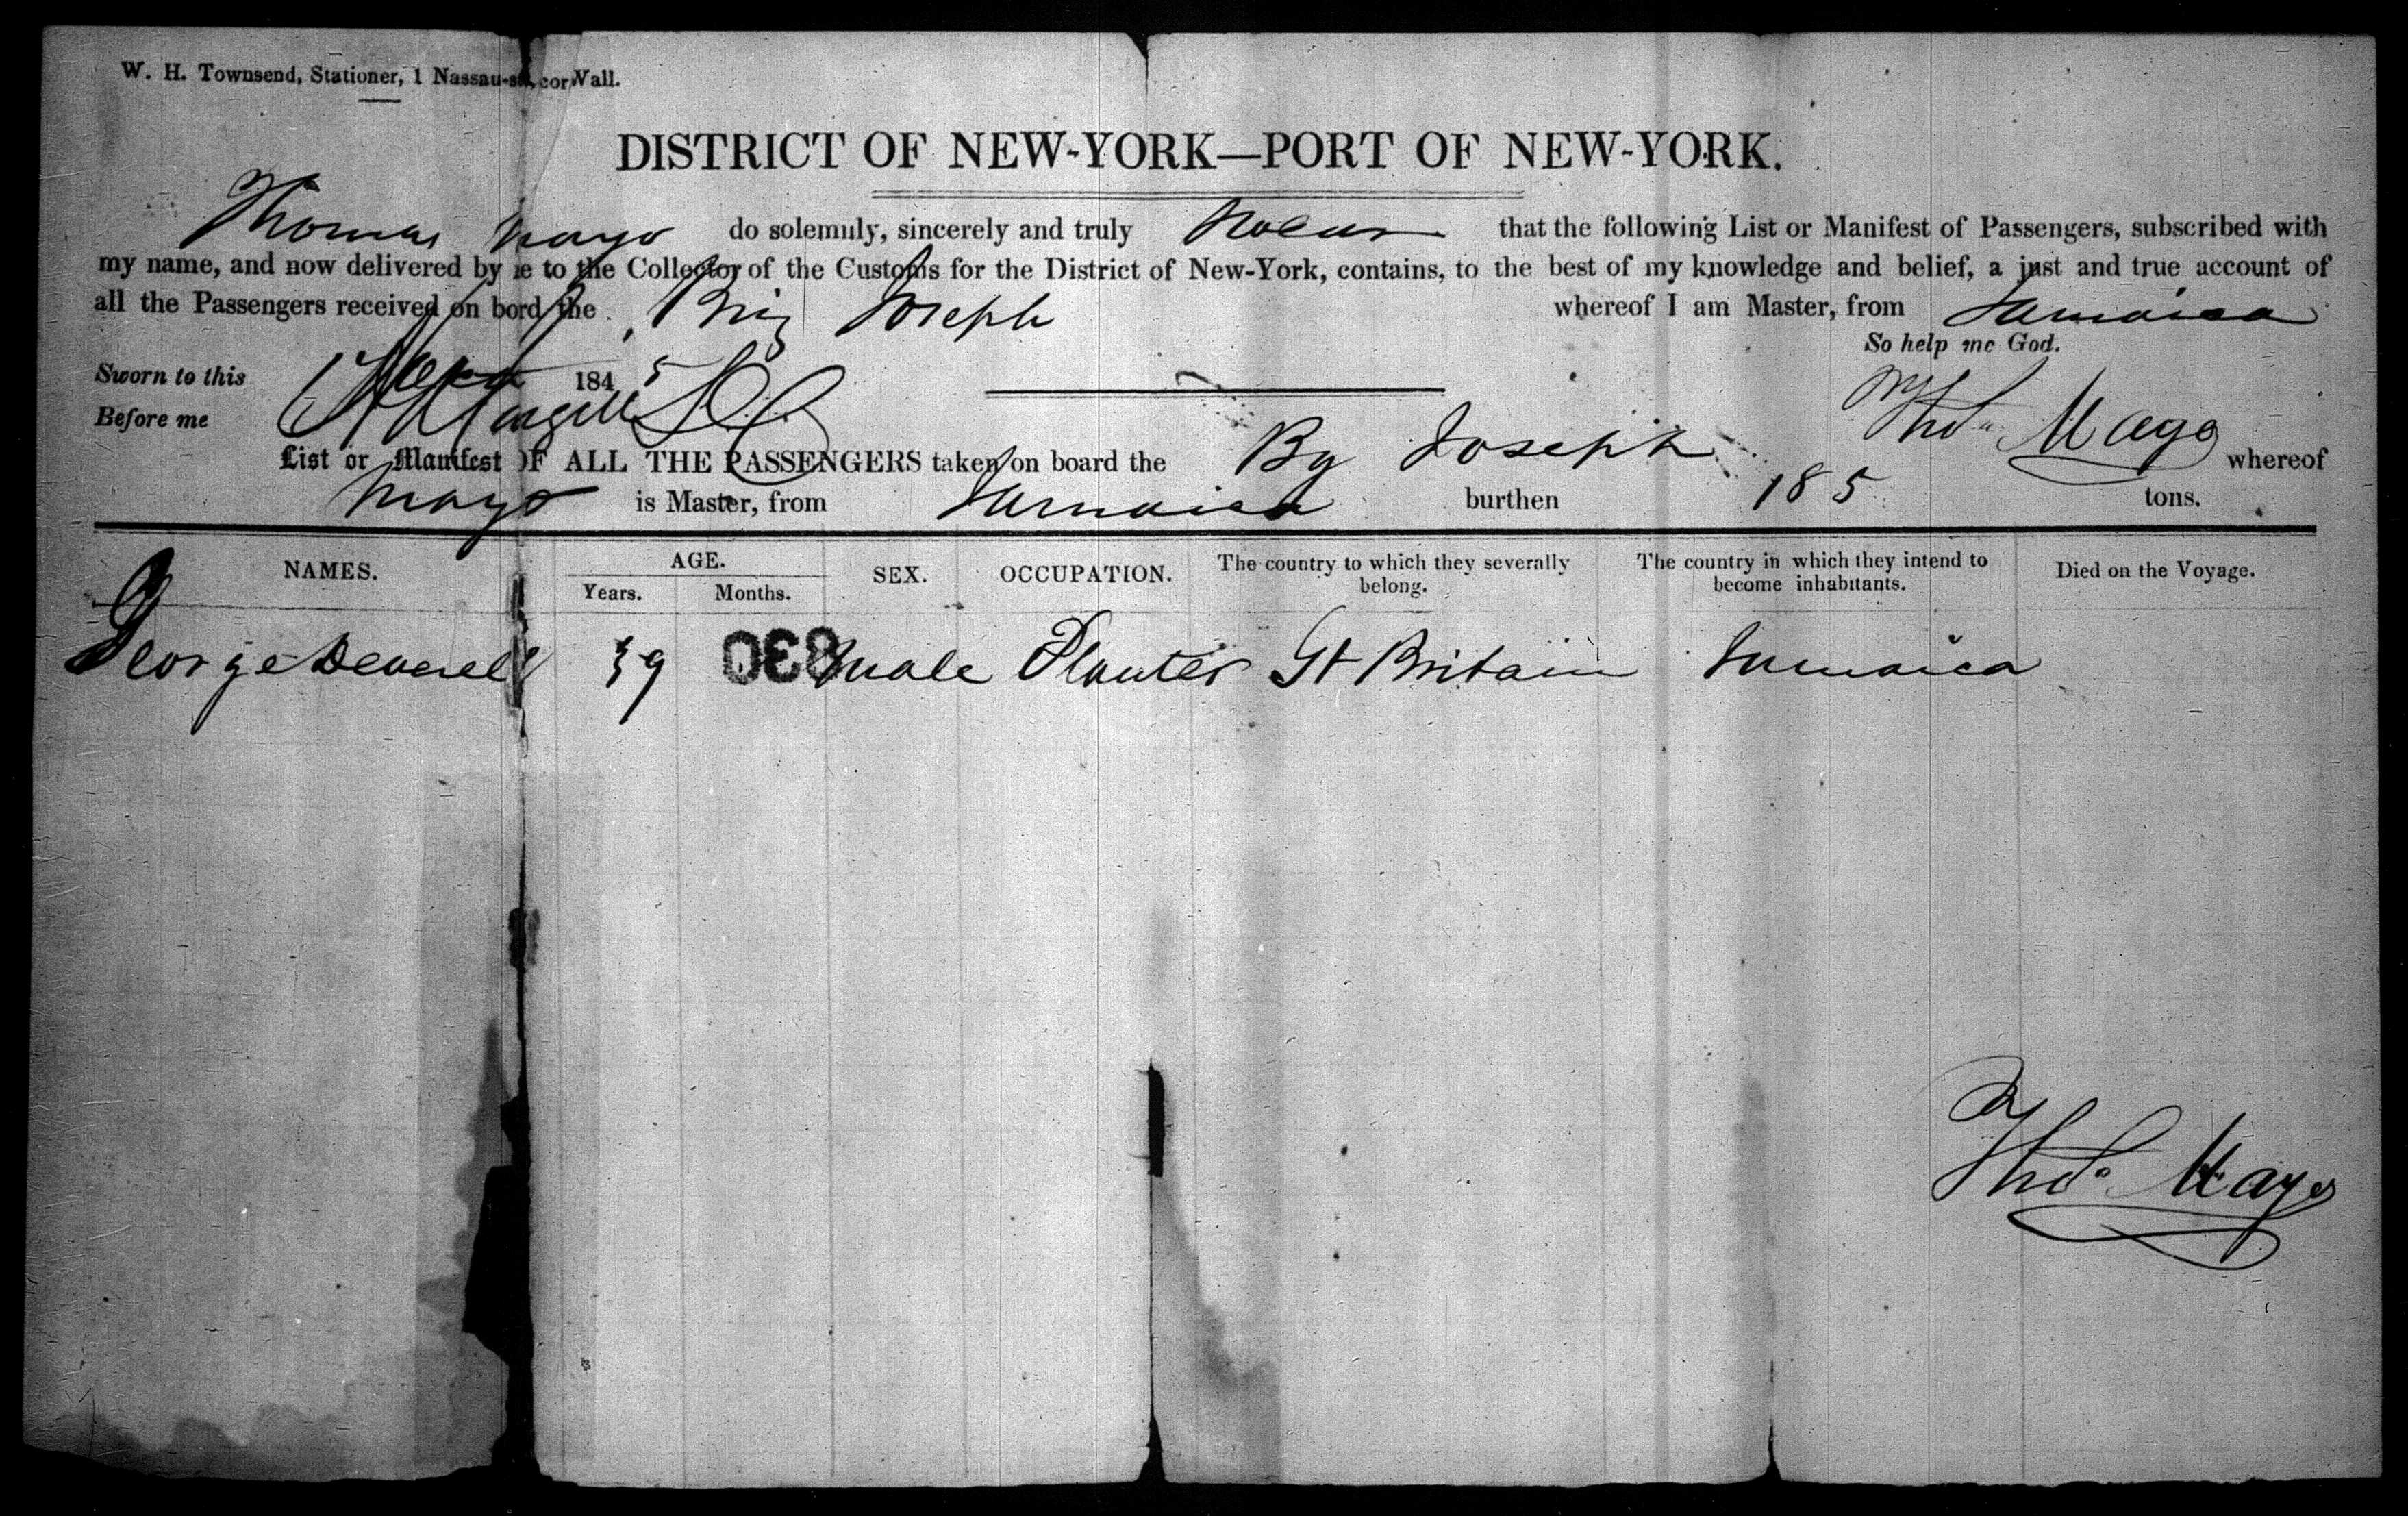 W. H. Townsend, Stationer, 1 Nassau-st, cor Wall.
DISTRICT OF NEW-YORK—PORT OF NEW-YORK.
Thomas Mayo do solemnly, sincerely and truly swear that the following List or Manifest of Passengers, subscribed with
my name, and now delivered by me to the Collector of the Customs for the District of New-York, contains, to the best of my knowledge and belief, a just and true account of
all the Passengers received on bord the Brig Joseph whereof I am Master, from Jamaica
So help me God.
Sworn to this 1845
Before me
Thos Mayo
List or Manifest OF ALL THE PASSENGERS taken on board the Bg Joseph whereof
Mayo is Master, from Jamaica burthen 185 tons.
NAMES. AGE. Years. Months. SEX. OCCUPATION. The country to which they severally belong. The country in which they intend to become inhabitants. Died on the Voyage.
George Deverell 39 male Planter Gt Britain Jamaica
830
Thos Mayo